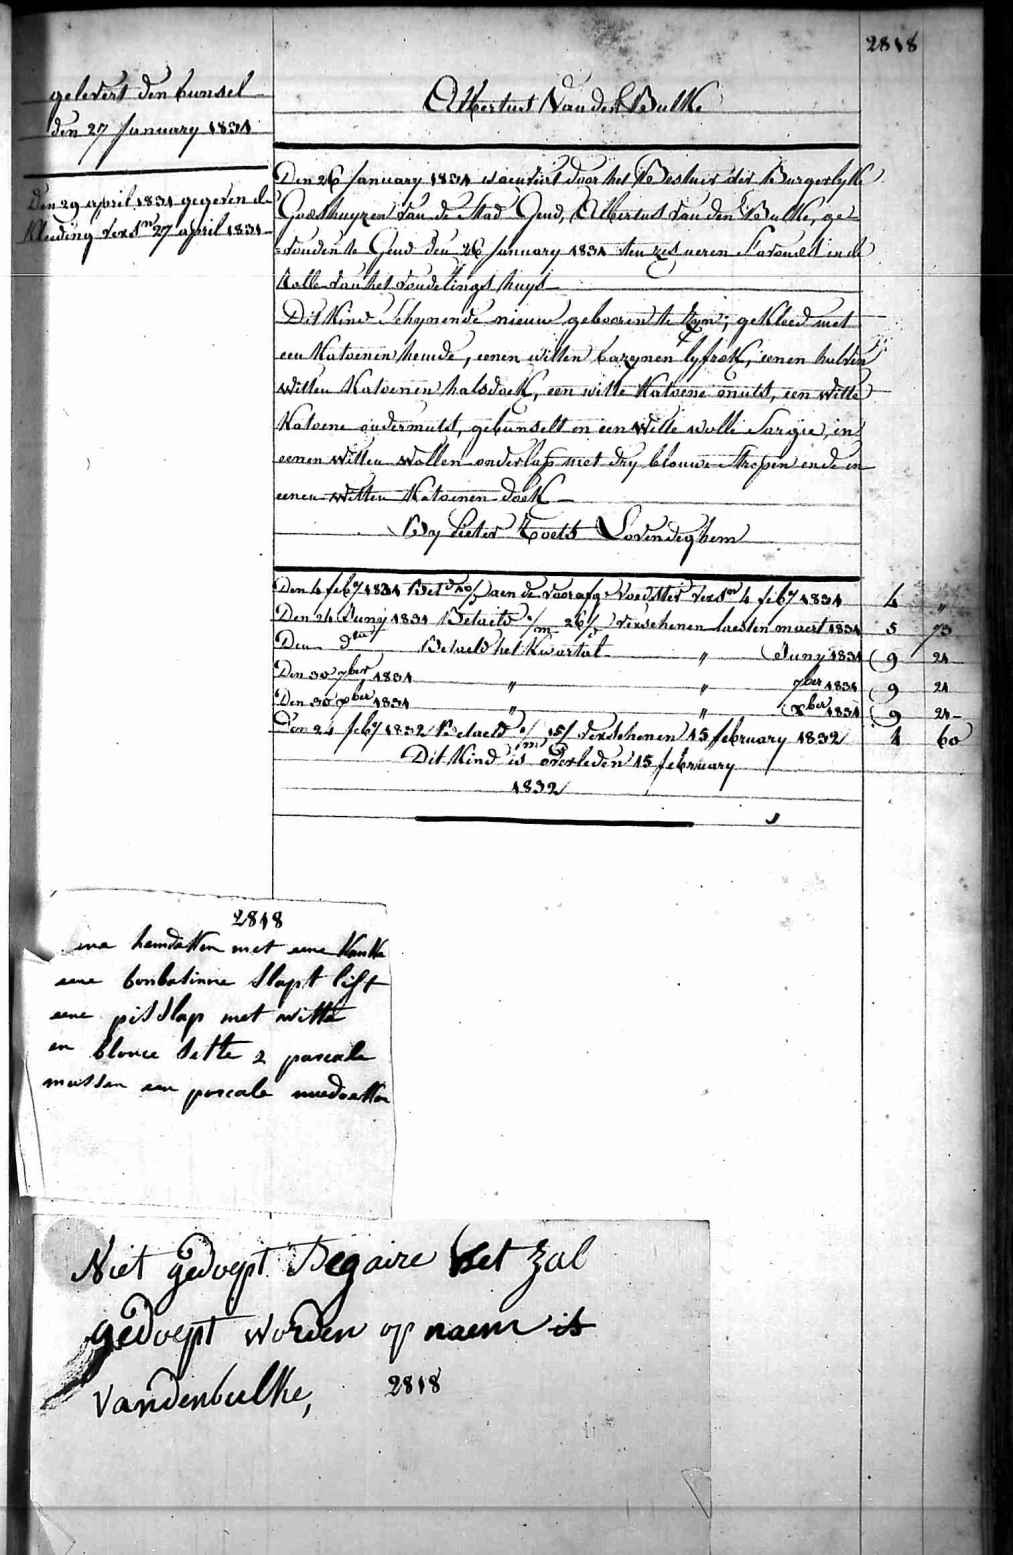 2818
gelevert den bunsel
den 27 January 1831
Den 29 april 1831 gegeven de
Kleeding versn 27 april 1831
Albertus Van den Bulke
Den 26 January 1831 is door het Bestuer der Burgerlyke
Godshuyzen van de Stad Gend, Albertus van den Bulke, ge-
vonden te Gend den 26 January 1831 ten zes ueren s'avonds in de
Rolle van het vondelings huys
Dit Kind Schynende nieuw gebooren te zyn; gekleed met
een Katoenen hemde, eenen witten bazynen lyfrok, eenen halven
witten Katoenen halsdoek, een witte Katoene muts, een witte
Katoene ondermuts, gebunselt in een witte wolle Sargie, in
eenen witten wollen onderlap met dry blouwe Strepen ende in
eenen witten Katoenen doek
By Pieter Lovendeghem
Den 4 feby 1831 Betd aen de voorafge voedster versn 4 feby 1831 4 "
Den 24 Juny 1831 Betaeld o/m 26/d verschenen laesten maert 1831 5 73
Den dto Betaeld het Kwartal " Juny 1831 9 24
Den 30 7ber 1831 " " 7ber 1831 9 24
Den 30 xber 1831 " " xber 1831 9 24
Den 24 feby 1832 Betaeld o/m 15/d verschenen 15 february 1832 4 60
Dit Kind is overleden 15 february
1832
2818
ene hemdeken met eene Kante
eene bonbasinne Slapt lift
eene pisslap met witte
en blouce lette 2 parcale
mussen een porcale
Niet gedoept Begaire het zal
gedoept worden op naem is
Vandenbulke, 2818